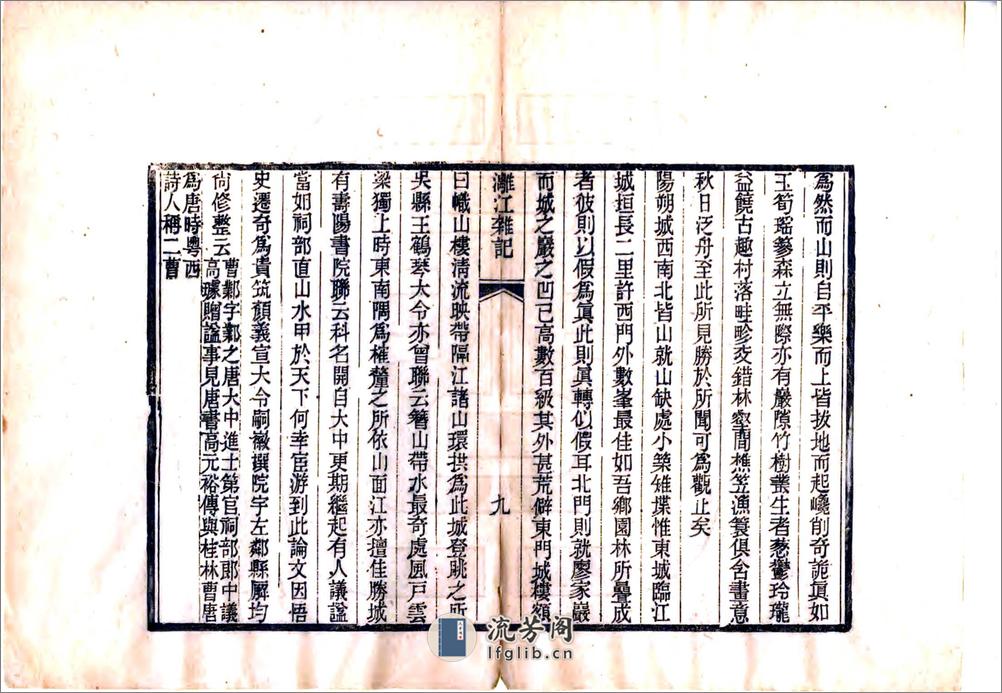 爲然而山則自平樂而上皆拔地而起巉削奇詭眞如
玉筍瑤篸森立無際亦有巖隙竹樹叢生者葱鬱玲瓏
益饒古趣村落畦畛交錯林壑間樵笠漁簑俱含畫意
秋日泛舟至此所見勝於所聞可爲觀止矣
陽朔城西南北皆山就山缺處小築雉堞惟東城臨江
城垣長二里許西門外數峯最佳如吾鄉園林所疊成
者彼則以假爲眞此則眞轉似假耳北門則就廖家巖
而城之巖之凹已高數百級其外甚荒僻東門城樓額
灕江雜記
九
曰巇山樓淸流映帶隔江諸山環拱爲此城登眺之所
吳縣王鶴琴大令亦曾聯云簪山帶水最奇處風戸雲
梁獨上時東南隅爲榷釐之所依山面江亦擅佳勝城
有壽陽書院聯云科名開自大中更期繼起有人議諡
當如祠部直山水甲於天下何幸宦游到此論文因悟
史遷奇爲貴筑顏義宣大令嗣徽撰院宇左鄰縣廨均
尙修整云
曹鄴字鄴之唐大中進士第官祠部郎中議
高璩贈諡事見唐書高元裕傳與桂林曹唐
爲唐時粵西
詩人稱二曹
流芳阁
lfglib.cn